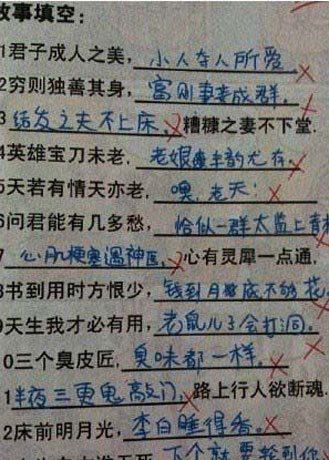 故事填空:
1君子成人之美,小人夺人所爱.
2穷则独善其身,富则妻妾成群.
3结发之夫不上床,糟糠之妻不下堂.
4英雄宝刀未老,老娘丰韵尤存.
5天若有情天亦老,嘿,老天!
6问君能有几多愁,恰似一群太监上青
7心肌梗塞遇神医,心有灵犀一点通,
8书到用时方恨少,钱到月底不够花
9天生我才必有用,老鼠儿子会打洞.
10三个臭皮匠,臭味都一样.
1半夜三更鬼敲门,路上行人欲断魂.
2床前明月光,李白睡得香.
下个就要轮到你